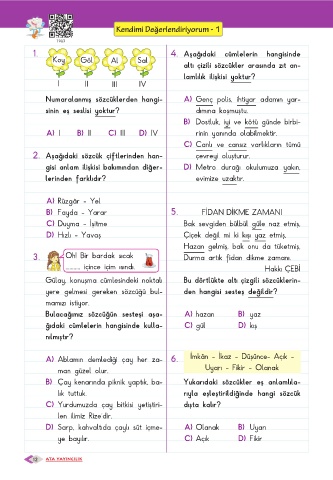 Kendimi Değerlendiriyorum - 1
1.
Koy
Göl
Al
Sal
I
II
III
IV
Numaralanmış sözcüklerden hangi-
sinin eş seslisi yoktur?
A) I
B) II
C) III
D) IV
2. Aşağıdaki sözcük çiftlerinden han-
gisi anlam ilişkisi bakımından diğer-
lerinden farklıdır?
A) Rüzgâr - Yel
B) Fayda - Yarar
C) Duyma - İşitme
D) Hızlı - Yavaş
3.
Oh! Bir bardak sıcak
......... içince içim ısındı.
Gülay, konuşma cümlesindeki noktalı
yere gelmesi gereken sözcüğü bul-
mamızı istiyor.
Bulacağımız sözcüğün sesteşi aşa-
ğıdaki cümlelerin hangisinde kulla-
nılmıştır?
A) Ablamın demlediği çay her za-
man güzel olur.
B) Çay kenarında piknik yaptık, ba-
lık tuttuk.
C) Yurdumuzda çay bitkisi yetiştiri-
len ilimiz Rize'dir.
D) Sarp, kahvaltıda çaylı süt içme-
ye bayılır.
4. Aşağıdaki cümlelerin hangisinde
altı çizili sözcükler arasında zıt an-
lamlılık ilişkisi yoktur?
A) Genç polis, ihtiyar adamın yar-
dımına koşmuştu.
B) Dostluk, iyi ve kötü günde birbi-
rinin yanında olabilmektir.
C) Canlı ve cansız varlıkların tümü
çevreyi oluşturur.
D) Metro durağı okulumuza yakın,
evimize uzaktır.
5.
FİDAN DİKME ZAMANI
Bak sevgiden bülbül güle naz etmiş,
Çiçek değil mi ki kışı yaz etmiş,
Hazan gelmiş, bak onu da tüketmiş,
Durma artık fidan dikme zamanı.
Hakkı ÇEBİ
Bu dörtlükte altı çizgili sözcüklerin-
den hangisi sesteş değildir?
A) hazan
B) yaz
C) gül
D) kış
6.
İmkân - İkaz - Düşünce- Açık -
Uyarı - Fikir - Olanak
Yukarıdaki sözcükler eş anlamlıla-
rıyla eşleştirildiğinde hangi sözcük
dışta kalır?
A) Olanak
B) Uyarı
C) Açık
D) Fikir
ATA YAYINCILIK